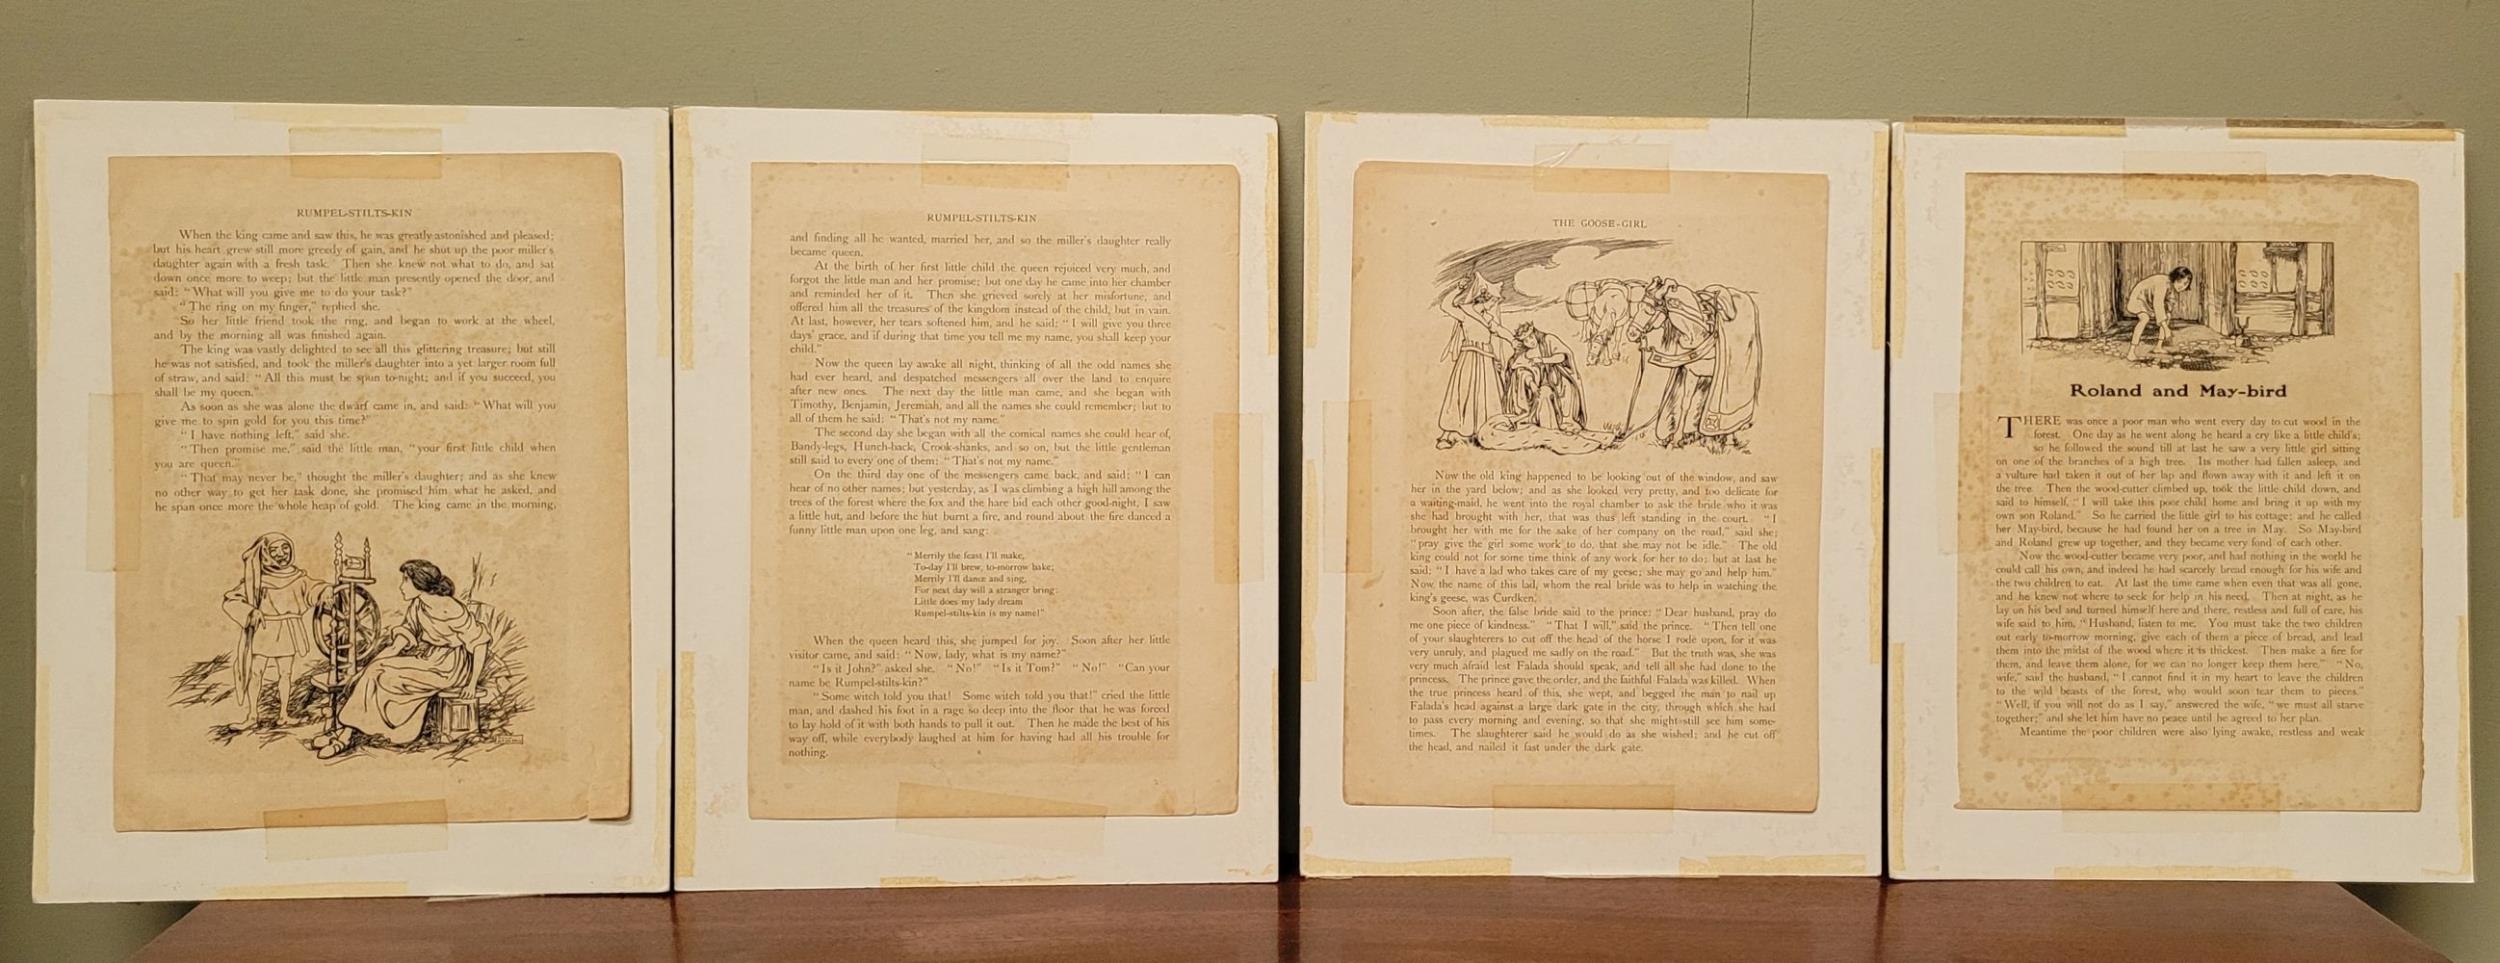 RUMPEL-STILTS-KIN
When the king came and saw this, he was greatly astonished and pleased;
but his heart grew still more greedy of gain, and he shut up the poor miller's
daughter again with a fresh task. Then she knew not what to do, and sat
down once more to weep; but the little man presently opened the door, and
said: “What will you give me to do your task?”
“The ring on my finger,” replied she.
So her little friend took the ring, and began to work at the wheel,
and by the morning all was finished again.
The king was vastly delighted to see all this glittering treasure; but still
he was not satisfied, and took the miller's daughter into a yet larger room full
of straw, and said: “All this must be spun to-night; and if you succeed, you
shall be my queen.”
As soon as she was alone the dwarf came in, and said: “What will you
give me to spin gold for you this time?”
“I have nothing left,” said she.
“Then promise me,” said the little man, “your first little child when
you are queen.”
“That may never be,” thought the miller's daughter; and as she knew
no other way to get her task done, she promised him what he asked, and
he spun once more the whole heap of gold. The king came in the morning,
RUMPEL-STILTS-KIN
and finding all he wanted, married her, and so the miller's daughter really
became queen.
At the birth of her first little child the queen rejoiced very much, and
forgot the little man and her promise; but one day he came into her chamber
and reminded her of it. Then she grieved sorely at her misfortune, and
offered him all the treasures of the kingdom instead of the child, but in vain.
At last, however, her tears softened him, and he said: “I will give you three
days' grace, and if during that time you tell me my name, you shall keep your
child.”
Now the queen lay awake all night, thinking of all the odd names she
had ever heard, and despatched messengers all over the land to enquire
after new ones. The next day the little man came, and she began with
Timothy, Benjamin, Jeremiah, and all the names she could remember; but to
all of them he said: “That's not my name.”
The second day she began with all the comical names she could hear of,
Bandy-legs, Hunch-back, Crook-shanks, and so on, but the little gentleman
still said to every one of them: “That's not my name.”
On the third day one of the messengers came back, and said: “I can
hear of no other names; but yesterday, as I was climbing a high hill among the
trees of the forest where the fox and the hare bid each other good-night, I saw
a little hut, and before the hut burnt a fire, and round about the fire danced a
funny little man upon one leg, and sang:
“Merrily the feast I'll make,
To-day I'll brew, to-morrow bake;
Merrily I'll dance and sing,
For next day will a stranger bring:
Little does my lady dream
Rumpel-stilts-kin is my name!”
When the queen heard this, she jumped for joy. Soon after her little
visitor came, and said: “Now, lady, what is my name?”
“Is it John?” asked she. “No!” “Is it Tom?” “No!” “Can your
name be Rumpel-stilts-kin?”
“Some witch told you that! Some witch told you that!” cried the little
man, and dashed his foot in a rage so deep into the floor that he was forced
to lay hold of it with both hands to pull it out. Then he made the best of his
way off, while everybody laughed at him for having had all his trouble for
nothing.
THE GOOSE-GIRL
Now the old king happened to be looking out of the window, and saw
her in the yard below; and as she looked very pretty, and too delicate for
a waiting-maid, he went into the royal chamber to ask the bride who it was
she had brought with her, that was thus left standing in the court. “I
brought her with me for the sake of her company on the road,” said she;
“pray give the girl some work to do, that she may not be idle.” The old
king could not for some time think of any work for her to do; but at last he
said: “I have a lad who takes care of my geese; she may go and help him.”
Now the name of this lad, whom the real bride was to help in watching the
king's geese, was Curdken.
Soon after, the false bride said to the prince: “Dear husband, pray do
me one piece of kindness.” “That I will,” said the prince. “Then tell one
of your slaughterers to cut off the head of the horse I rode upon, for it was
very unruly, and plagued me sadly on the road.” But the truth was, she was
very much afraid lest Falada should speak, and tell all she had done to the
princess. The prince gave the order, and the faithful Falada was killed. When
the true princess heard of this, she wept, and begged the man to nail up
Falada's head against a large dark gate in the city, through which she had
to pass every morning and evening, so that she might still see him some-
times. The slaughterer said he would do as she wished; and he cut off
the head, and nailed it fast under the dark gate.
Roland and May-bird
THERE was once a poor man who went every day to cut wood in the
forest. One day as he went along he heard a cry like a little child's;
so he followed the sound till at last he saw a very little girl sitting
on one of the branches of a high tree. Its mother had fallen asleep, and
a vulture had taken it out of her lap and flown away with it and left it on
the tree. Then the wood-cutter climbed up, took the little child down, and
said to himself, “I will take this poor child home and bring it up with my
own son Roland.” So he carried the little girl to his cottage; and he called
her May-bird, because he had found her on a tree in May. So May-bird
and Roland grew up together, and they became very fond of each other.
Now the wood-cutter became very poor, and had nothing in the world he
could call his own, and indeed he had scarcely bread enough for his wife and
the two children to eat. At last the time came when even that was all gone,
and he knew not where to seek for help in his need. Then at night, as he
lay on his bed and turned himself here and there, restless and full of care, his
wife said to him, “Husband, listen to me. You must take the two children
out early to-morrow morning, give each of them a piece of bread, and lead
them into the midst of the wood where it is thickest. Then make a fire for
them, and leave them alone, for we can no longer keep them here.” “No,
wife,” said the husband, “I cannot find it in my heart to leave the children
to the wild beasts of the forest, who would soon tear them to pieces.”
“Well, if you will not do as I say,” answered the wife, “we must all starve
together;” and she let him have no peace until he agreed to her plan.
Meantime the poor children were also lying awake, restless and weak